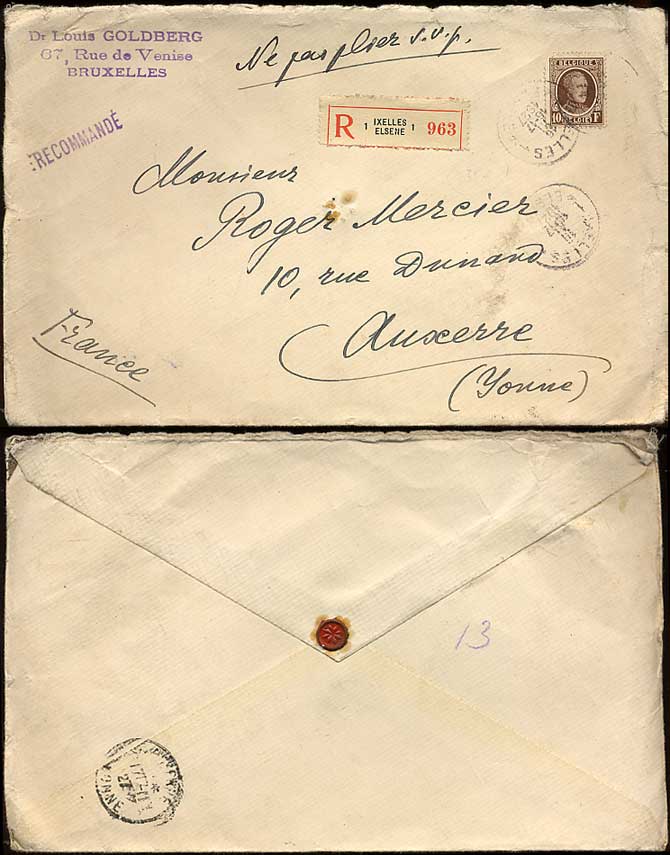 Dr Louis GOLDBERG
67, Rue de Venise
BRUXELLES
Ne pas plier s.v.p.
BELGIQUE
10 BELGIE F
R 1 IXELLES ELSENE 1 963
RECOMMANDÉ
Monsieur
Roger Mercier
10, rue Dunand
Auxerre
(Yonne)
France
13